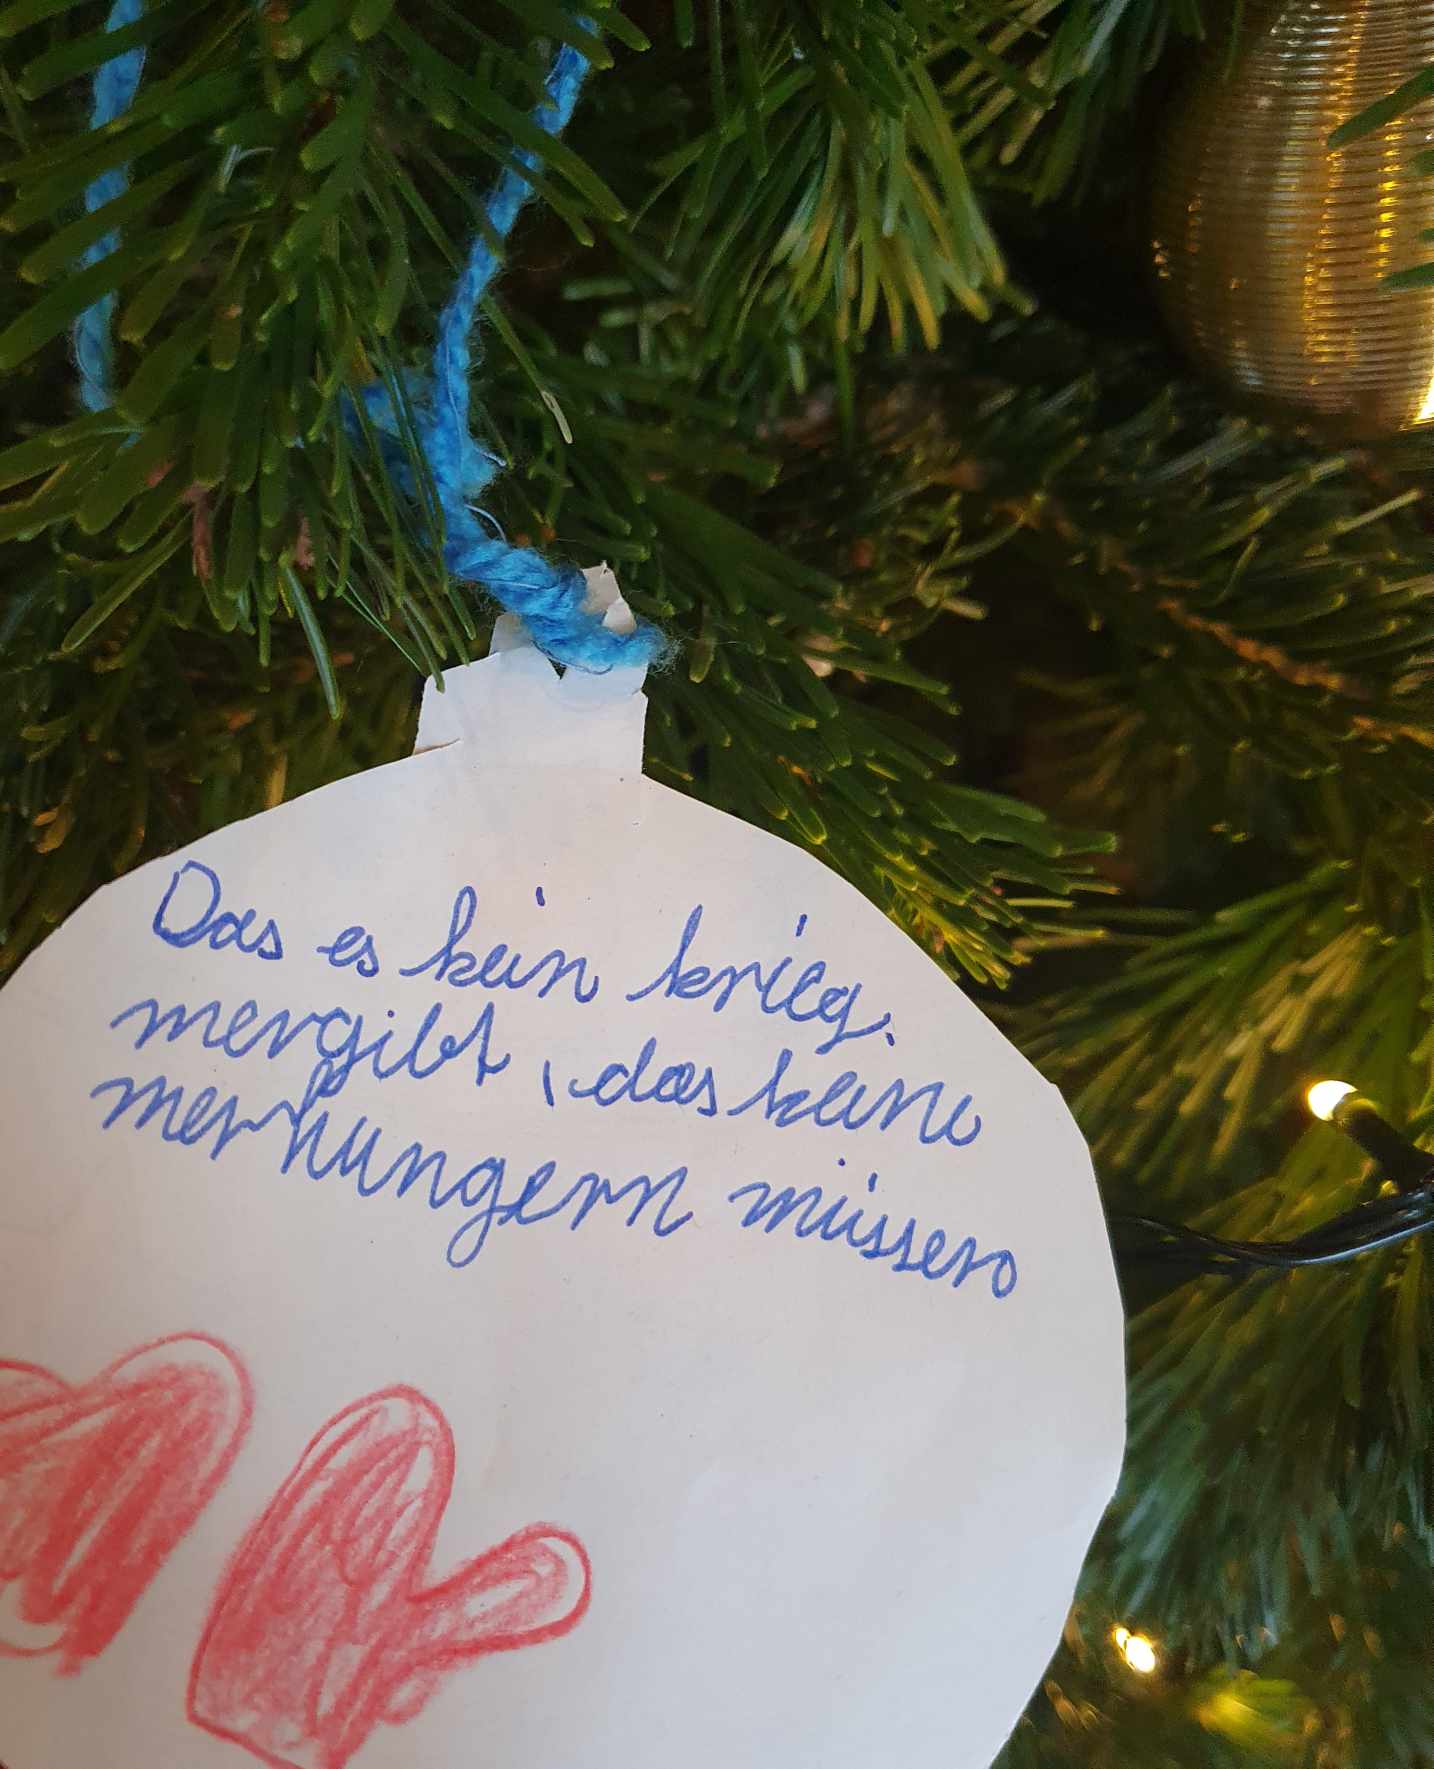 Das es kein krieg.
mergibt, das kein
merhungern müssen